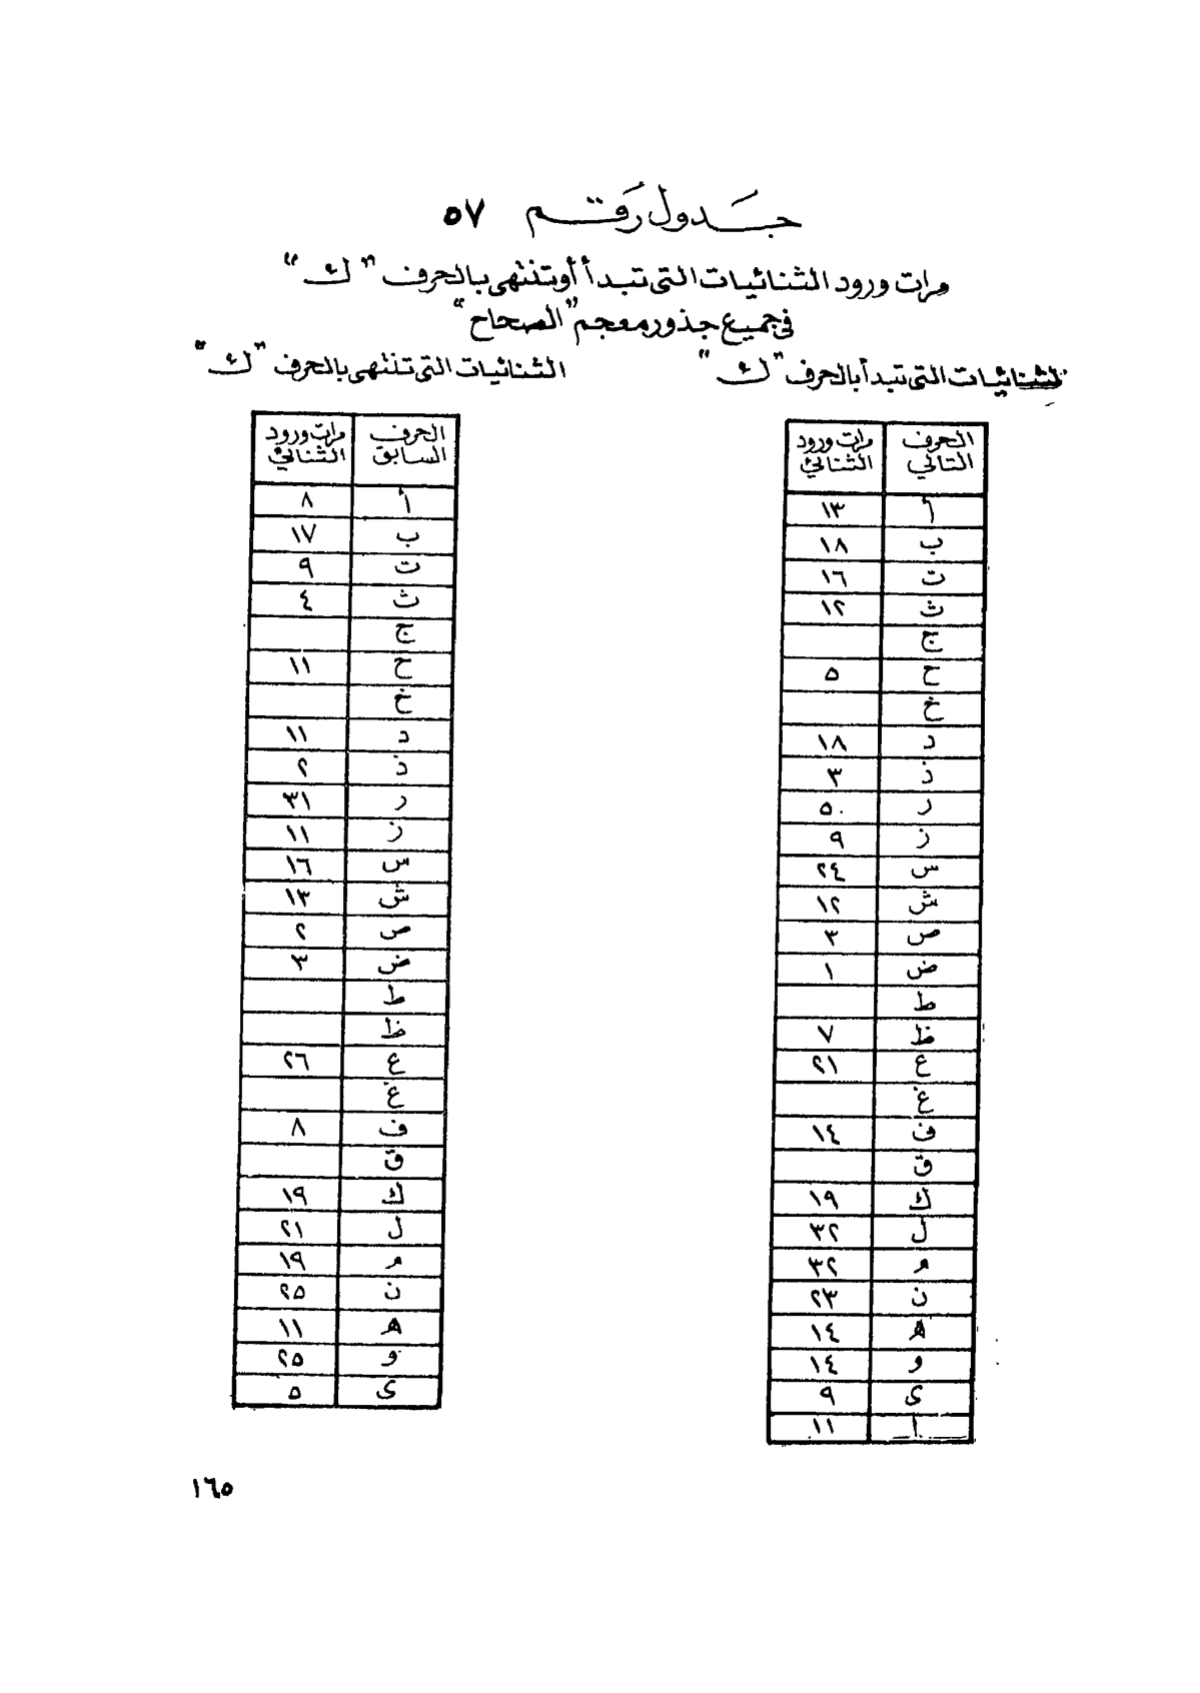 جَدول رَقم ٥٧
مرات ورود الثنائيات التى تبدأ أو تنتهى بالحرف "ك"
فى جميع جذور معجم "الصحاح"
الثنائيات التى تبدأ بالحرف "ك"
الحرف التالي مرات ورود الثنائي
أ ١٣
ب ١٨
ت ١٦
ث ١٢
ج
ح ٥
خ
د ١٨
ذ ٣
ر ٥٠
ز ٩
س ٢٤
ش ١٢
ص ٣
ض ١
ط
ظ ٧
ع ٢١
غ
ف ١٤
ق
ك ١٩
ل ٣٢
م ٣٢
ن ٢٣
ه ١٤
و ١٤
ى ٩
ا ١١
الثنائيات التى تنتهى بالحرف "ك"
الحرف السابق مرات ورود الثنائي
أ ٨
ب ١٧
ت ٩
ث ٤
ج
ح ١١
خ
د ١١
ذ ٢
ر ٣١
ز ١١
س ١٦
ش ١٣
ص ٢
ض ٣
ط
ظ
ع ٢٦
غ
ف ٨
ق
ك ١٩
ل ٢١
م ١٩
ن ٢٥
ه ١١
و ٢٥
ى ٥
١٦٥